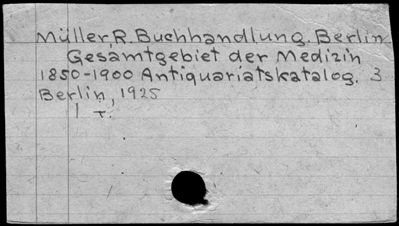 Müller, R. Buchhandlung. Berlin
Gesamtgebiet der Medizin
1850-1900 Antiquariatskatalog. 3
Berlin, 1925
1 t.